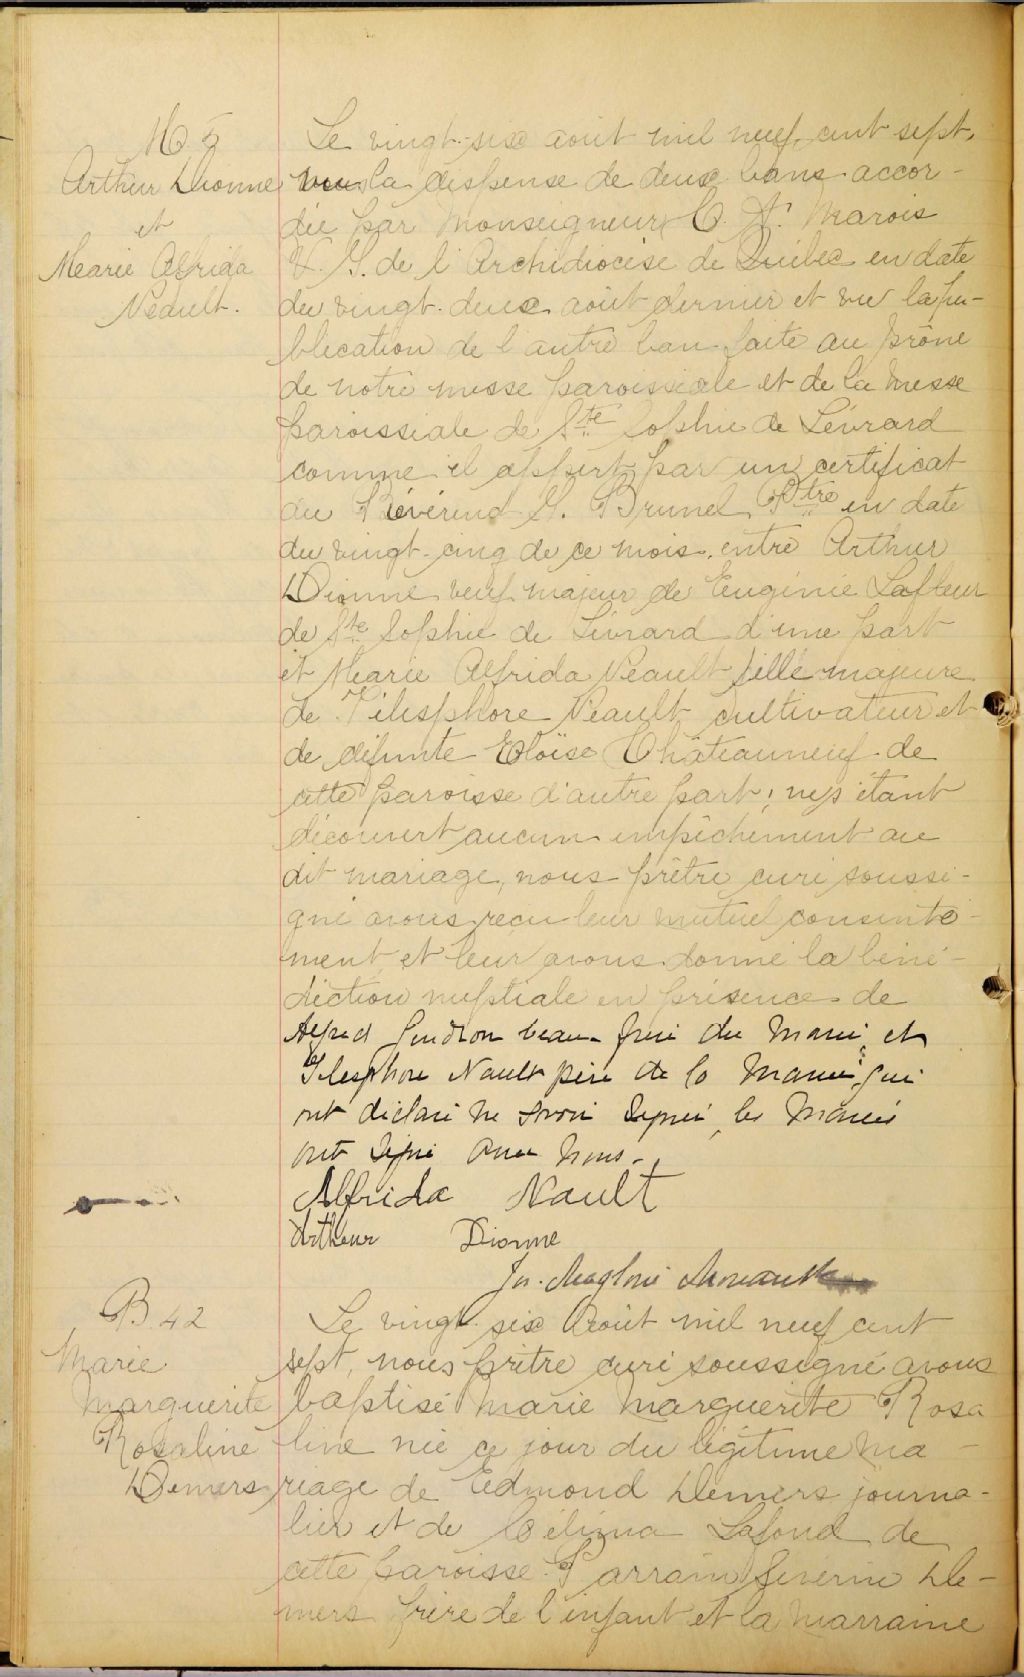 M 5
Arthur Dionne
et
Marie Alfrida
Néault.
Le vingt-six août mil neuf cent sept,
vu la dispense de deux bans accor-
dée par Monseigneur C. A. Marois
V. G. de l'Archidiocèse de Québec en date
du vingt-deux août dernier et vu la pu-
blication de l'autre ban faite au prône
de notre messe paroissiale et de la messe
paroissiale de Ste Sophie de Lévrard
comme il appert par un certificat
du Révérend G. Brunel, Ptre en date
du vingt-cinq de ce mois, entre Arthur
Dionne veuf majeur de Eugénie Lafleur
de Ste Sophie de Lévrard d'une part
et Marie Alfrida Néault fille majeure
de Télesphore Néault cultivateur et
de défunte Eloïse Châteauneuf de
cette paroisse d'autre part; ne s'étant
découvert aucun empêchement au
dit mariage, nous prêtre curé soussi-
gné avons reçu leur mutuel consente-
ment et leur avons donné la béné-
diction nuptiale en présence de
Alfred beau-frère du marié et
Télesphore Nault père de la mariée qui
ont déclaré ne savoir signer, les mariés
ont signé avec nous.
Alfrida Nault
Arthur Dionne
Jos. Magloire
B. 42
Marie
Marguerite
Rosaline
Demers
Le vingt-six Août mil neuf cent
sept, nous prêtre curé soussigné avons
baptisé Marie Marguerite Rosa
line née ce jour du légitime ma-
riage de Edmond Demers journa-
lier et de Célina Lafond de
cette paroisse. Parrain Séverin De-
mers frère de l'enfant et la marraine